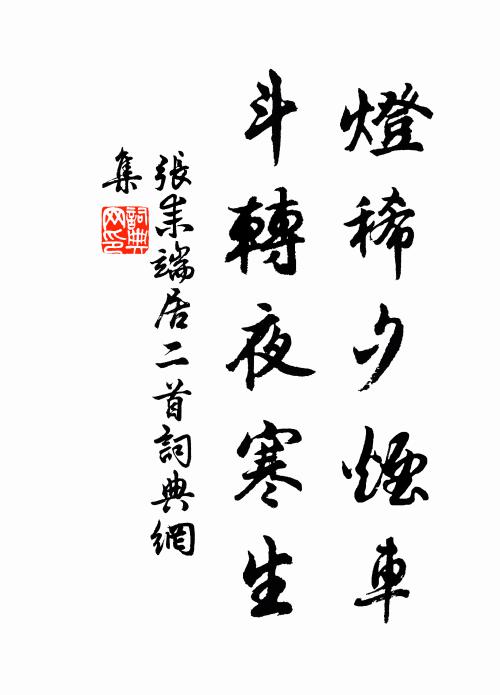 燈稀夕煙車
斗轉夜寒生
張耒端居二首詞典網
集
詞典
网印